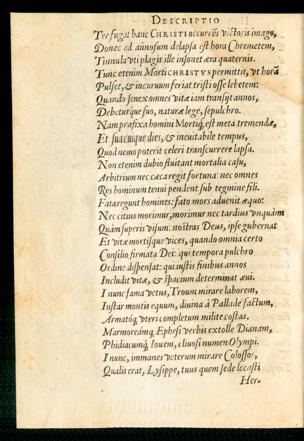 DESCRIPTIO
Ter fugat hanc CHRISTI occurrẽs victoris imago,
Donec ad annosum delapsa est hora Chremetem,
Tinnula vti plagis ille insonet æra quaternis.
Tunc etenim Morti CHRISTVS permittit, vt horã
Pulset, & incuruum feriat tristi osse lebetem:
Quando senex omnes vitæ iam transijt annos,
Debeturque suo, naturæ lege, sepulchro.
Nam præfixa homini Mortiq́; est meta tremendæ,
Et suacuique dies, & ineuitabile tempus,
Quod nemo poterit celeri transcurrere lapsu.
Non etenim dubio fluitant mortalia casu,
Arbitrium nec cæca regit fortuna: nec omnes
Res hominum tenui pendent sub tegmine fili.
Fata regunt homines: fato mors aduenit æquo:
Nec citius morimur, morimur nec tardius vnquàm
Quàm superis visum: nostras Deus, ipse gubernat
Et vitæ mortisque vices, quando omnia certo
Consilio firmata Dei: qui tempora pulchro
Ordine dispensat: qui iustis finibus annos
Includit vitæ, & spacium determinat æui.
I nunc fama vetus, Troum mirare laborem,
Instar montis equum, diuina à Pallade factum,
Armatóq; vteri completum milite costas.
Marmoreámq; Ephesi verbis extolle Dianam,
Phidiacumq́; Iouem, cliuosi numen Olympi.
I nunc, immanes veterum mirare Colossos,
Qualis erat, Lysippe, tuus quem sede locasti
Her.